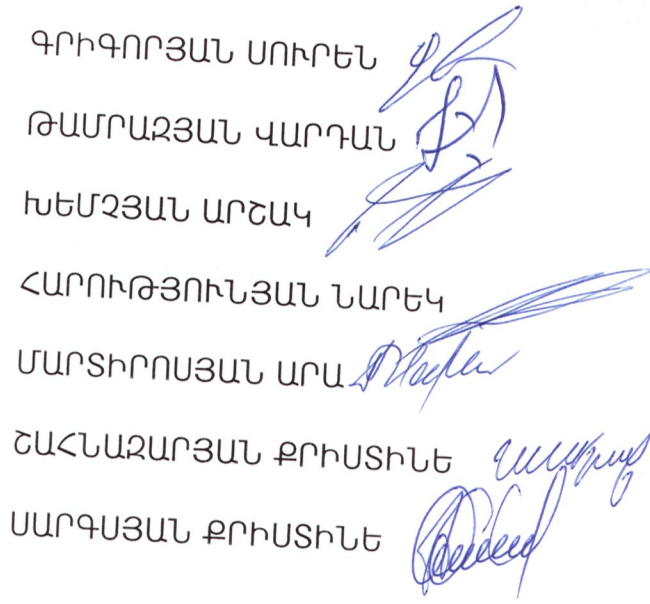 ԳՐԻԳՈՐՅԱՆ ՍՈՒՐԵՆ
ԹԱՄՐԱԶՅԱՆ ՎԱՐԴԱՆ
ԽԵՄՉՅԱՆ ԱՐՇԱԿ
ՀԱՐՈՒԹՅՈՒՆՅԱՆ ՆԱՐԵԿ
ՄԱՐՏԻՐՈՍՅԱՆ ԱՐԱ
ՇԱՀՆԱԶԱՐՅԱՆ ՔՐԻՍՏԻՆԵ
ՍԱՐԳՍՅԱՆ ՔՐԻՍՏԻՆԵ